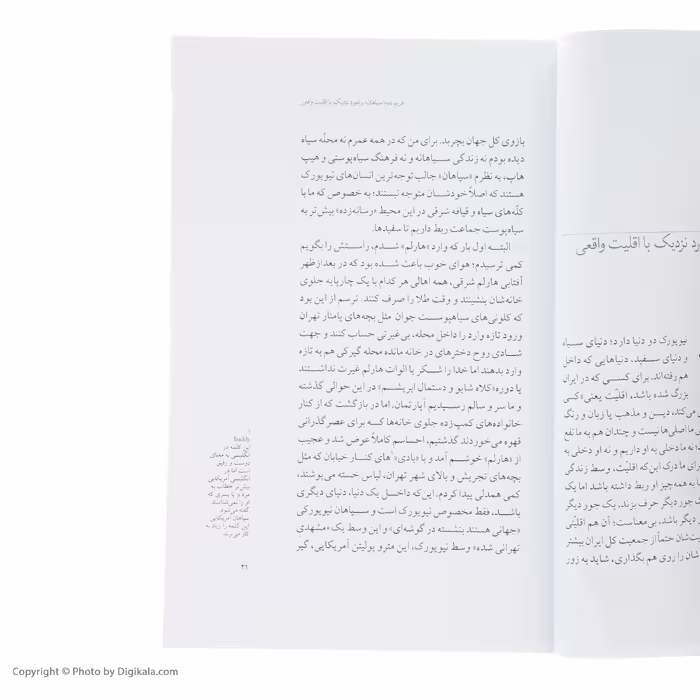 ورد نزدیک با اقلیت واقعی
نیویورک دو دنیا دارد؛ دنیای سیاه
و دنیای سفید، دنیاهایی که داخل
هم رفته‌اند. برای کسی که در ایران
بزرگ شده باشد، اقلیّت یعنی «کسی
می‌کند، دیـن و مذهب یا زبان و رنگ
ما اصلی‌ها نیست و چندان هم به ما نفع
نه ما دخلی به او داریم و نه او دخلی به
برای ما درک این‌که اقلیّت، وسط زندگی
با همه‌چیز او ربط داشته باشد اما یک
جور دیگر حرف بزند، یک جور دیگر
دیگر باشد، بی‌معناست؛ آن هم اقلیّتی
جمعیت‌شان حتماً از جمعیت کل ایران بیشتر
شان را روی هم بگذاری، شاید به زور
فرم دوم: سیاهان؛ برخورد نزدیک با اقلیت واقعی
بازوی کل جهان بچربد. برای من که در همه عمرم نه محلّه سیاه
دیده بودم نه زندگی سـیاهانه و نه فرهنگ سیاه‌پوستی و هیپ
هاپ، به نظرم «سیاهان» جالب توجه‌ترین انسان‌های نیویورک
هستند که اصلاً خودشـان متوجه نیستند؛ به خصوص که ما با
کلّه‌های سیاه و قیافه شرقی در این محیط «رسانه‌زده» بیش‌تر به
سیاه‌پوست جماعت ربط داریم تا سفیدها.
البتـه اول بار که وارد «هارلم» شـدم، راسـتش را بگویم
کمی ترسیدم؛ هوای خوب باعث شـده بود که در بعدازظهر
آفتابی هارلم شرقی، همه اهالی هر کدام با یک چارپایه جلوی
خانه‌شان بنشینند و وقت طلا را صرف کنند. ترسم از این بود
که کلونی‌های سیاهپوسـت جوان مثل بچه‌های پامنار تهران
ورود تازه وارد را داخل محله، بی‌غیرتی حساب کنند و جهت
شـادی روح دخترهای در خانه مانده محله گیرکی هم به تازه
وارد بدهند اما خدا را شـکر یا الوات هارلم غیرت نداشـتند
یا دوره «کلاه شاپو و دستمال ابریشـم» در این حوالی گذشته
و ما سر و سالم رسیدیم آپارتمان. اما در بازگشت که از کنار
خانواده‌های کمپ‌زده جلوی خانه‌ها کـه برای عصرگذرانی
قهوه می‌خوردند گذشتیم، احساسم کاملاً عوض شد و عجیب
از «هارلم» خوشـم آمد و با «بادی»۱های کنار خیابان که مثل
بچه‌های تجریش و بالای شهر تهران، لباس خسته می‌پوشند،
کمی همدلی پیدا کردم. این‌که داخـل یک دنیا، دنیای دیگری
باشـد، فقط مخصوص نیویورک است و سـیاهان نیویورکی
«جهانی هستند بنشسته در گوشه‌ای» و این وسط یک «مشهدی
تهرانی شده» وسط نیویورک، این مترو پولیتن آمریکایی، گیر
۱
buddy
این کلمه در
انگلیسی به معنای
دوست و رفیق
است اما در
انگلیسی آمریکایی
بیش‌تر خطاب به
مرد و یا پسری که
او را نمی‌شناسند
گفته می‌شود.
سیاهان آمریکایی
این کلمه را زیاد به
کار می‌برند.
۳۱
Copyright © Photo by Digikala.com